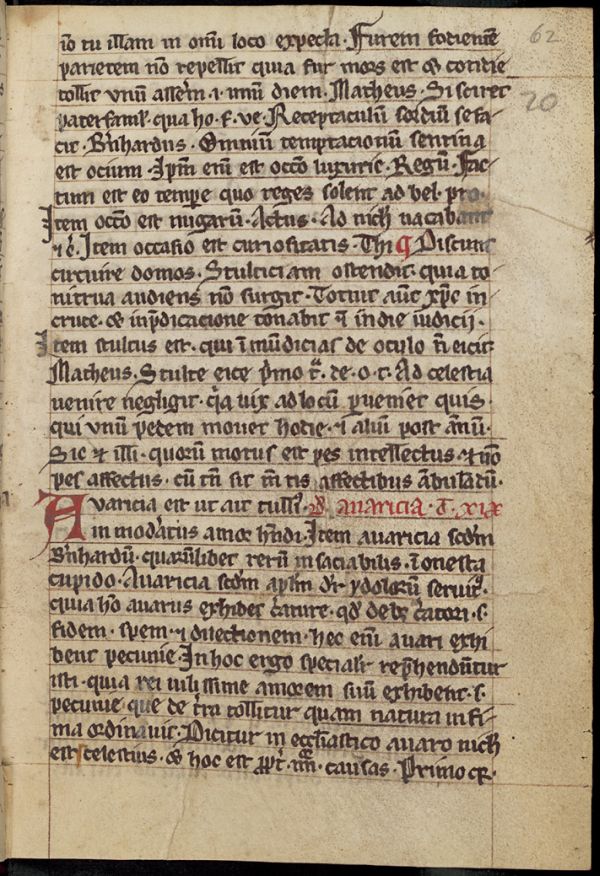 62
20
nõ tu illam in omĩ loco expecta. Furem fodientẽ
parietem nõ repellit quia fur mors est & cotidie
tollit vnũ asserẽ .i. unũ diem. Matheus. Si sciret
pater famil' qua ho. f. ve. Receptaculũ sordiũ se fa
cit. B'nhardus. Omniũ temptacionũ sentina
est ocium. Ip̃m enĩ est occõ luxurie. Regũ. Fac
tum est eo tempe quo reges solent ad bel. pro.
Item occõ est nugarũ. Actus. Ad nich' uacabant
Item occasio est curiositatis. Thi ¶ Discunt
circuire domos. Stulticiam ostendit. quia to
nitrua audiens nõ surgit. Totut aũt xp̃c in
cruce. & in p̃dicacione tonabit ĩ in die iudicij.
Item stultus est. qui ĩmũdicias de oculo ñ eicit
Matheus. Stulte eice p̃mo t. de. o. t. Ad celestia
uenire negligit. q̃a uix ad locũ p̃ueniet quis.
qui vnũ pedem mouet hodie. & aliũ post ãnũ.
Sic & illi. quorũ motus est pes intellectus. & nõ
pes affectus. cũ tñ sit m̃tis affectibus ãbulãdũ.
Avaricia est ut ait tulli'. D' auaricia. t. xix
inmod'atus amor h'ndi. Item auaricia scd̃m
B'nhardũ. quarũlibet rerũ insaciabilis. ĩonesta
cupido. Auaricia scd̃m apl'm dr̃ ydolorũ seruit'.
quia hõ auarus exhibet c̃ature. qd' debz c̃atori. s.
fidem. spem. & dilectionem. hec enĩ auari exhi
bent pecunie. In hoc ergo specialr' rep̃hendũtur
isti. quia rei uilissime amorem suũ exhibent. s.
pecunie que de t'ra tollitur quam natura infi
ma ordinauit. Dicitur in ecclhiastico auaro nich'
est scelestius. & hoc est p̃pt' .iiii. causas. Primo qr.